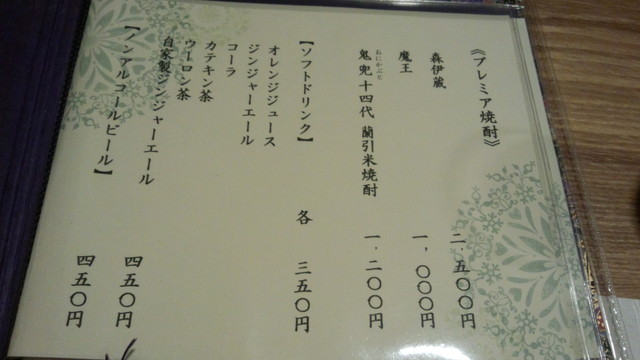 《プレミア焼酎》
森伊蔵 二.五〇〇円
魔王 一,〇〇〇円
おにかぶと
鬼兜 十四代 蘭引米焼酎 一.二〇〇円
【ソフトドリンク】 各 三五〇円
オレンジジュース
ジンジャーエール
コーラ
カテキン茶
ウーロン茶
自家製ジンジャーエール 四五〇円
【ノンアルコールビール】 四五〇円